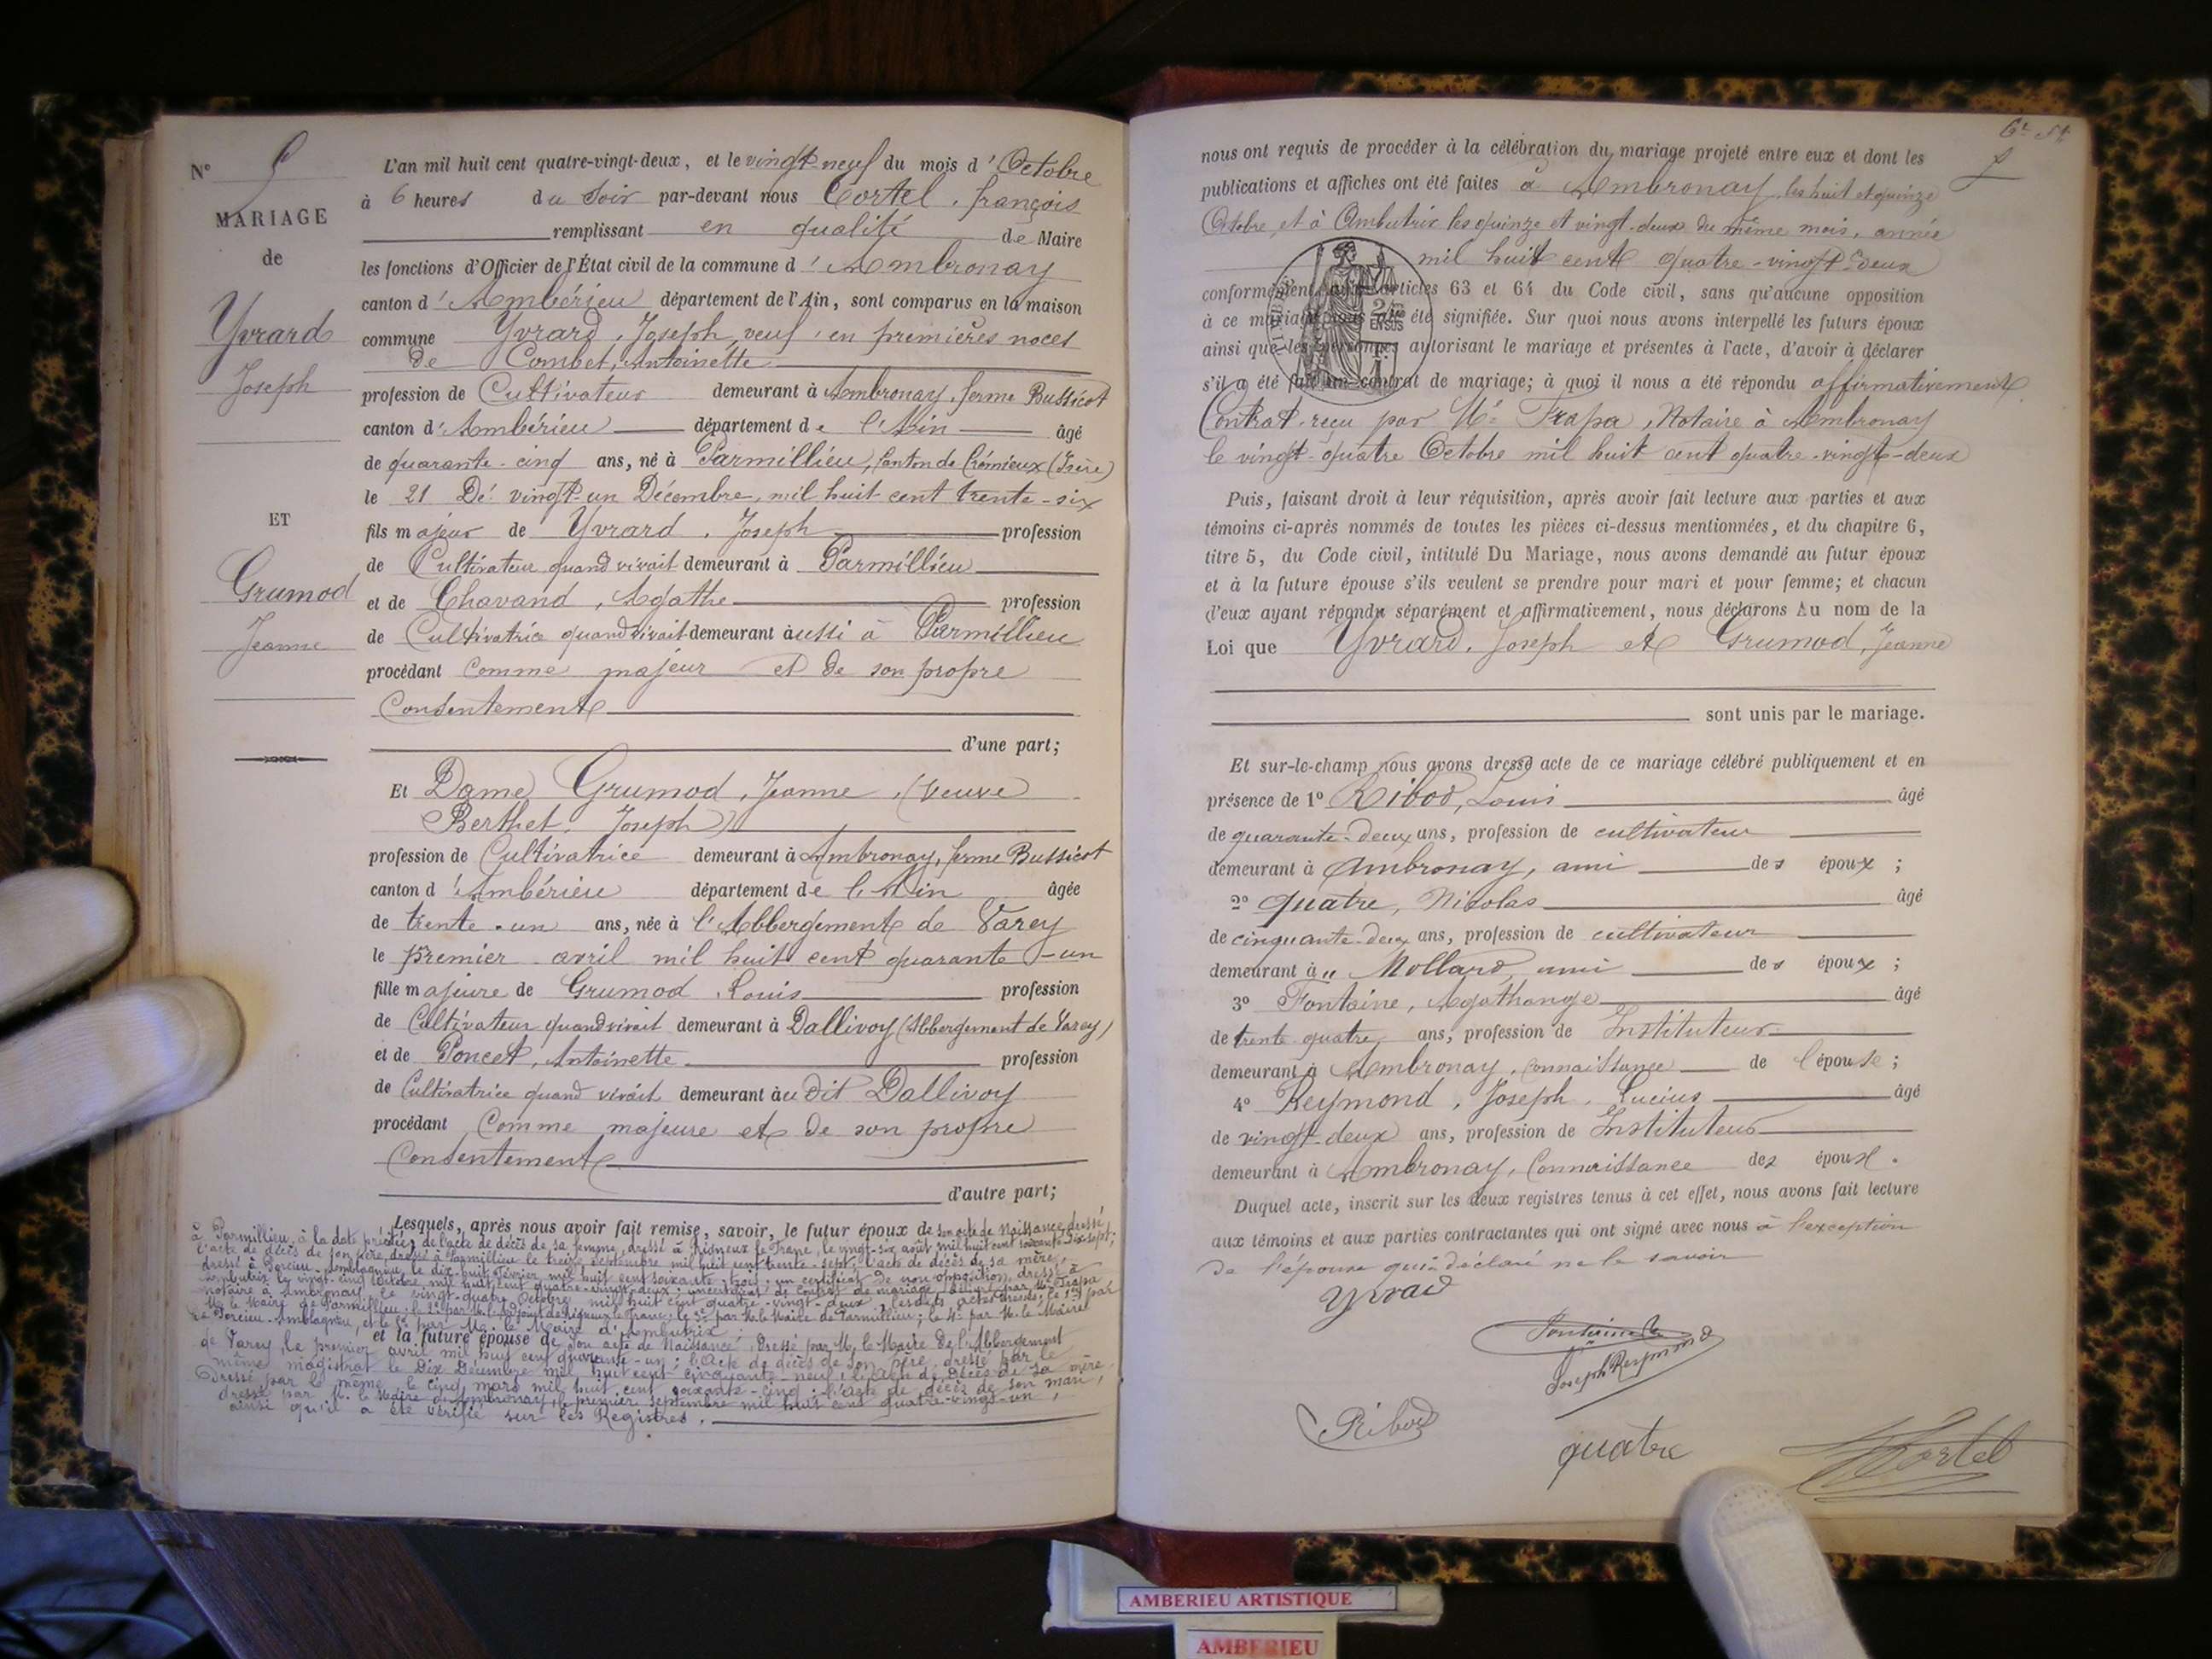 N° 9
MARIAGE
de
Yvrard
Joseph
ET
Grumod
Jeanne
L'an mil huit cent quatre-vingt-deux, et le vingt-neuf du mois d'Octobre
à 6 heures du Soir par-devant nous Cortel, françois
remplissant en qualité de Maire
les fonctions d'Officier de l'État civil de la commune d'Ambronay
canton d'Ambérieu département de l'Ain, sont comparus en la maison
commune Yvrard, Joseph, veuf en premières noces
de Combet, Antoinette
profession de Cultivateur demeurant à Ambronay, ferme Bussicot
canton d'Ambérieu département de l'Ain âgé
de quarante-cinq ans, né à Parmillieu, Canton de Crémieux (Isère)
le 21 Dé: vingt-un Décembre, mil huit cent trente-six
fils majeur de Yvrard, Joseph profession
de Cultivateur quand vivait demeurant à Parmillieu
et de Chavand, Agathe profession
de Cultivatrice quand vivait demeurant aussi à Parmillieu
procédant comme majeur et de son propre
Consentement
d'une part;
Et Dame Grumod, Jeanne, (Veuve
Berthet, Joseph)
profession de Cultivatrice demeurant à Ambronay, ferme Bussicot
canton d'Ambérieu département de l'Ain âgée
de trente-un ans, née à l'Abbergement de Varey
le premier avril mil huit cent quarante-un
fille majeure de Grumod, Louis profession
de Cultivateur quand vivait demeurant à Dallivoy (Abbergement de Varey)
et de Poncet, Antoinette profession
de Cultivatrice quand vivait demeurant au dit Dallivoy
procédant Comme majeure et de son propre
Consentement
d'autre part;
Lesquels, après nous avoir fait remise, savoir, le futur époux de son acte de Naissance dressé
à Parmillieu, à la date précitée, de l'acte de décès de sa femme, dressé à Rigneux le Franc, le vingt-six août mil huit cent soixante-dix-sept;
l'acte de décès de son père, dressé à Parmillieu le treize septembre mil huit cent trente-sept; l'acte de décès de sa mère,
dressé à Porcieu-Amblagnieu, le dix-huit février mil huit cent soixante-trois; un certificat de non opposition, dressé à
Ambutrix le vingt-cinq Octobre mil huit cent quatre-vingt-deux; un certificat de contrat de mariage délivré par Me Trapa
notaire à Ambronay, le vingt-quatre Octobre mil huit cent quatre-vingt-deux, lesdits actes dressés; le 1er par
M. le Maire de Parmillieu; le 2e par M. l'adjoint de Rigneux le Franc; le 3e par M. le Maire de Parmillieu; le 4e par M. le Maire
de Porcieu-Amblagnieu, et le 5e par M. le Maire d'Ambutrix
et la future épouse de Son acte de Naissance, Dressé par M. le Maire de l'Abbergement
de Varey, le premier avril mil huit cent quarante-un; l'acte de décès de Son père, dressé par le
même magistrat le Dix Décembre mil huit cent cinquante-neuf; l'acte de décès de sa mère
Dressé par le même, le cinq mars mil huit cent soixante-cinq; l'acte de décès de son mari,
dressé par M. le Maire d'Ambronay, le premier septembre mil huit cent quatre-vingt-un,
ainsi qu'il a été vérifié sur les Registres.
nous ont requis de procéder à la célébration du mariage projeté entre eux et dont les
publications et affiches ont été faites à Ambronay, les huit et quinze
Octobre, et à Ambutrix les quinze et vingt-deux du même mois, année
mil huit cent quatre-vingt-deux
conformément aux articles 63 et 64 du Code civil, sans qu'aucune opposition
à ce mariage nous ait été signifiée. Sur quoi nous avons interpellé les futurs époux
ainsi que les personnes autorisant le mariage et présentes à l'acte, d'avoir à déclarer
s'il a été fait un contrat de mariage; à quoi il nous a été répondu affirmativement
Contrat reçu par Me Trapa, Notaire à Ambronay
le vingt-quatre Octobre mil huit cent quatre-vingt-deux
Puis, faisant droit à leur réquisition, après avoir fait lecture aux parties et aux
témoins ci-après nommés de toutes les pièces ci-dessus mentionnées, et du chapitre 6,
titre 5, du Code civil, intitulé Du Mariage, nous avons demandé au futur époux
et à la future épouse s'ils veulent se prendre pour mari et pour femme; et chacun
d'eux ayant répondu séparément et affirmativement, nous déclarons Au nom de la
Loi que Yvrard, Joseph et Grumod, Jeanne
sont unis par le mariage.
Et sur-le-champ nous avons dressé acte de ce mariage célébré publiquement et en
présence de 1° Ribod, Louis âgé
de quarante-deux ans, profession de cultivateur
demeurant à Ambronay, ami des époux;
2° Quatre, Nicolas âgé
de cinquante-deux ans, profession de cultivateur
demeurant à " Mollard, ami des époux;
3° Fontaine, Agathange âgé
de trente quatre ans, profession de Instituteur
demeurant à Ambronay, connaissance de l'épouse;
4° Reymond, Joseph, Lucius âgé
de vingt-deux ans, profession de Instituteur
demeurant à Ambronay, Connaissance des époux.
Duquel acte, inscrit sur les deux registres tenus à cet effet, nous avons fait lecture
aux témoins et aux parties contractantes qui ont signé avec nous à l'exception
de l'épouse qui a déclaré ne le savoir
yvrard
Fontaine
Joseph Reymond
Ribod
quatre
Cortel
AMBERIEU ARTISTIQUE
AMBERIEU